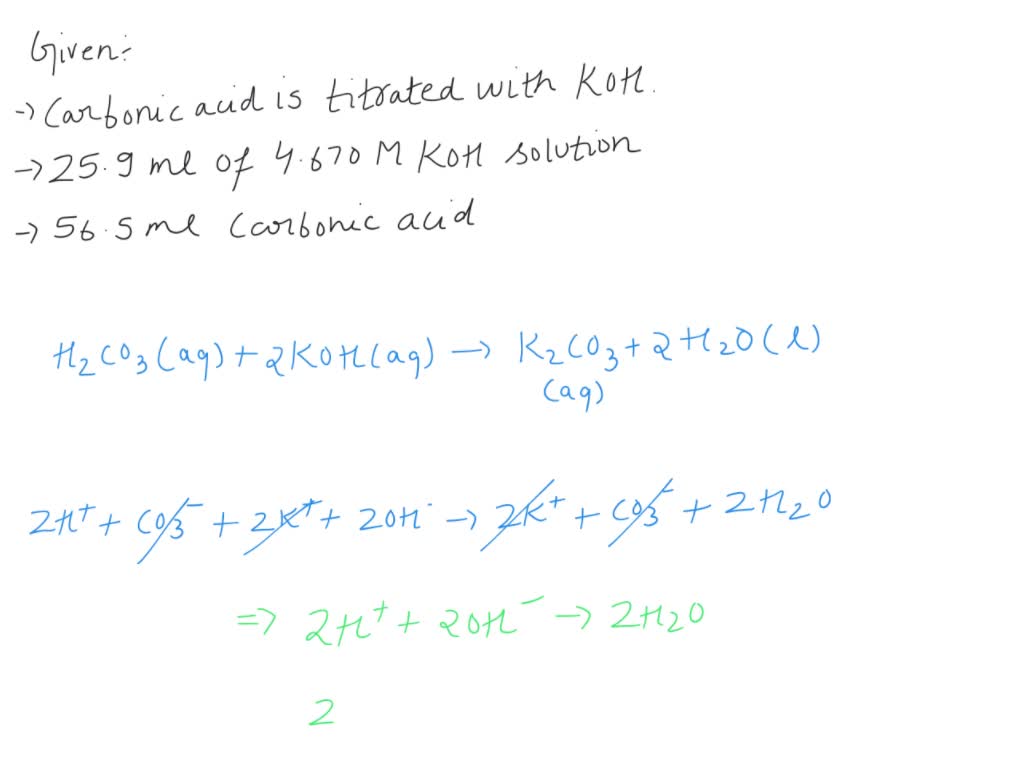 Given:-
-> Carbonic acid is titrated with KOH.
-> 25.9 ml of 4.670 M KOH solution
-> 56.5 ml Carbonic acid
H₂CO₃(aq) + 2KOH(aq) → K₂CO₃ + 2H₂O(l)
(aq)
2H⁺ + CO₃⁻ + 2K⁺ + 2OH⁻ → 2K⁺ + CO₃⁻ + 2H₂O
=> 2H⁺ + 2OH⁻ → 2H₂O
2